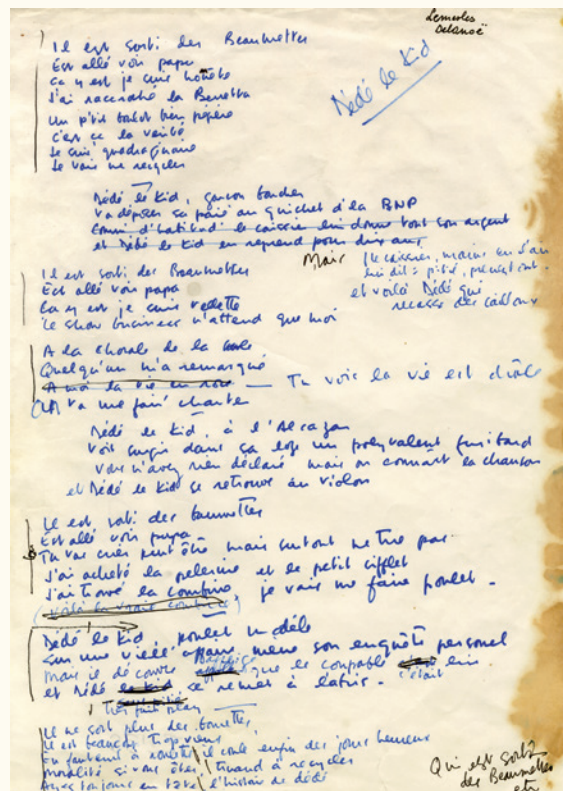 Lemesles
Delanoë
Dédé le Kid
Il est sorti des Beaumettes
Est allé voir papa
Ca y est je suis honnête
J'ai raccroché la Beretta
Un p'tit boulot bien pépère
C'est ça la vérité
Je suis quadragénaire
Je vais me recycler
Dédé le Kid, garçon boucher
Va déposer sa paie au guichet d'la BNP
Emu d'habitude le caissier lui donne tout son argent
et Dédé le Kid en reprend pour dix ans.
Mais le caissier, mains en l'air
lui dit : pitié, prenez tout.
et voilà Dédé qui
recasse des cailloux
Il est sorti des Beaumettes
Est allé voir papa
Ca y est je suis vedette
Le show business n'attend que moi
A la chorale de la
Quelqu'un m'a remarqué
A moi la vie en rose — Tu vois la vie est drôle
On va me faire chanter
Dédé le Kid, à l'Alcazar
Voit surgir dans sa loge un polyvalent furibard
Vous n'avez rien déclaré mais on connaît la chanson
et Dédé le Kid se retrouve au violon
Il est sorti des baumettes
Est allé voir papa
Tu vas crier peut être mais surtout ne tire pas
J'ai acheté la pelerine et le petit sifflet
J'ai trouvé la combine, je vais me faire poulet -
Dédé le Kid, poulet modèle
Sur une vieille affaire mène son enquête personnel
mais il découvre que le coupable c'était lui
et Dédé se remet à l'abri.
Il ne sort plus des baumettes
Il est beaucoup trop vieux
En fauteuil à roulettes il coule enfin des jours heureux
moralité si vous êtes, truand à recycler
Ayez toujours en tête l'histoire de dédé
Qui est sorti
des Beaumettes
etc